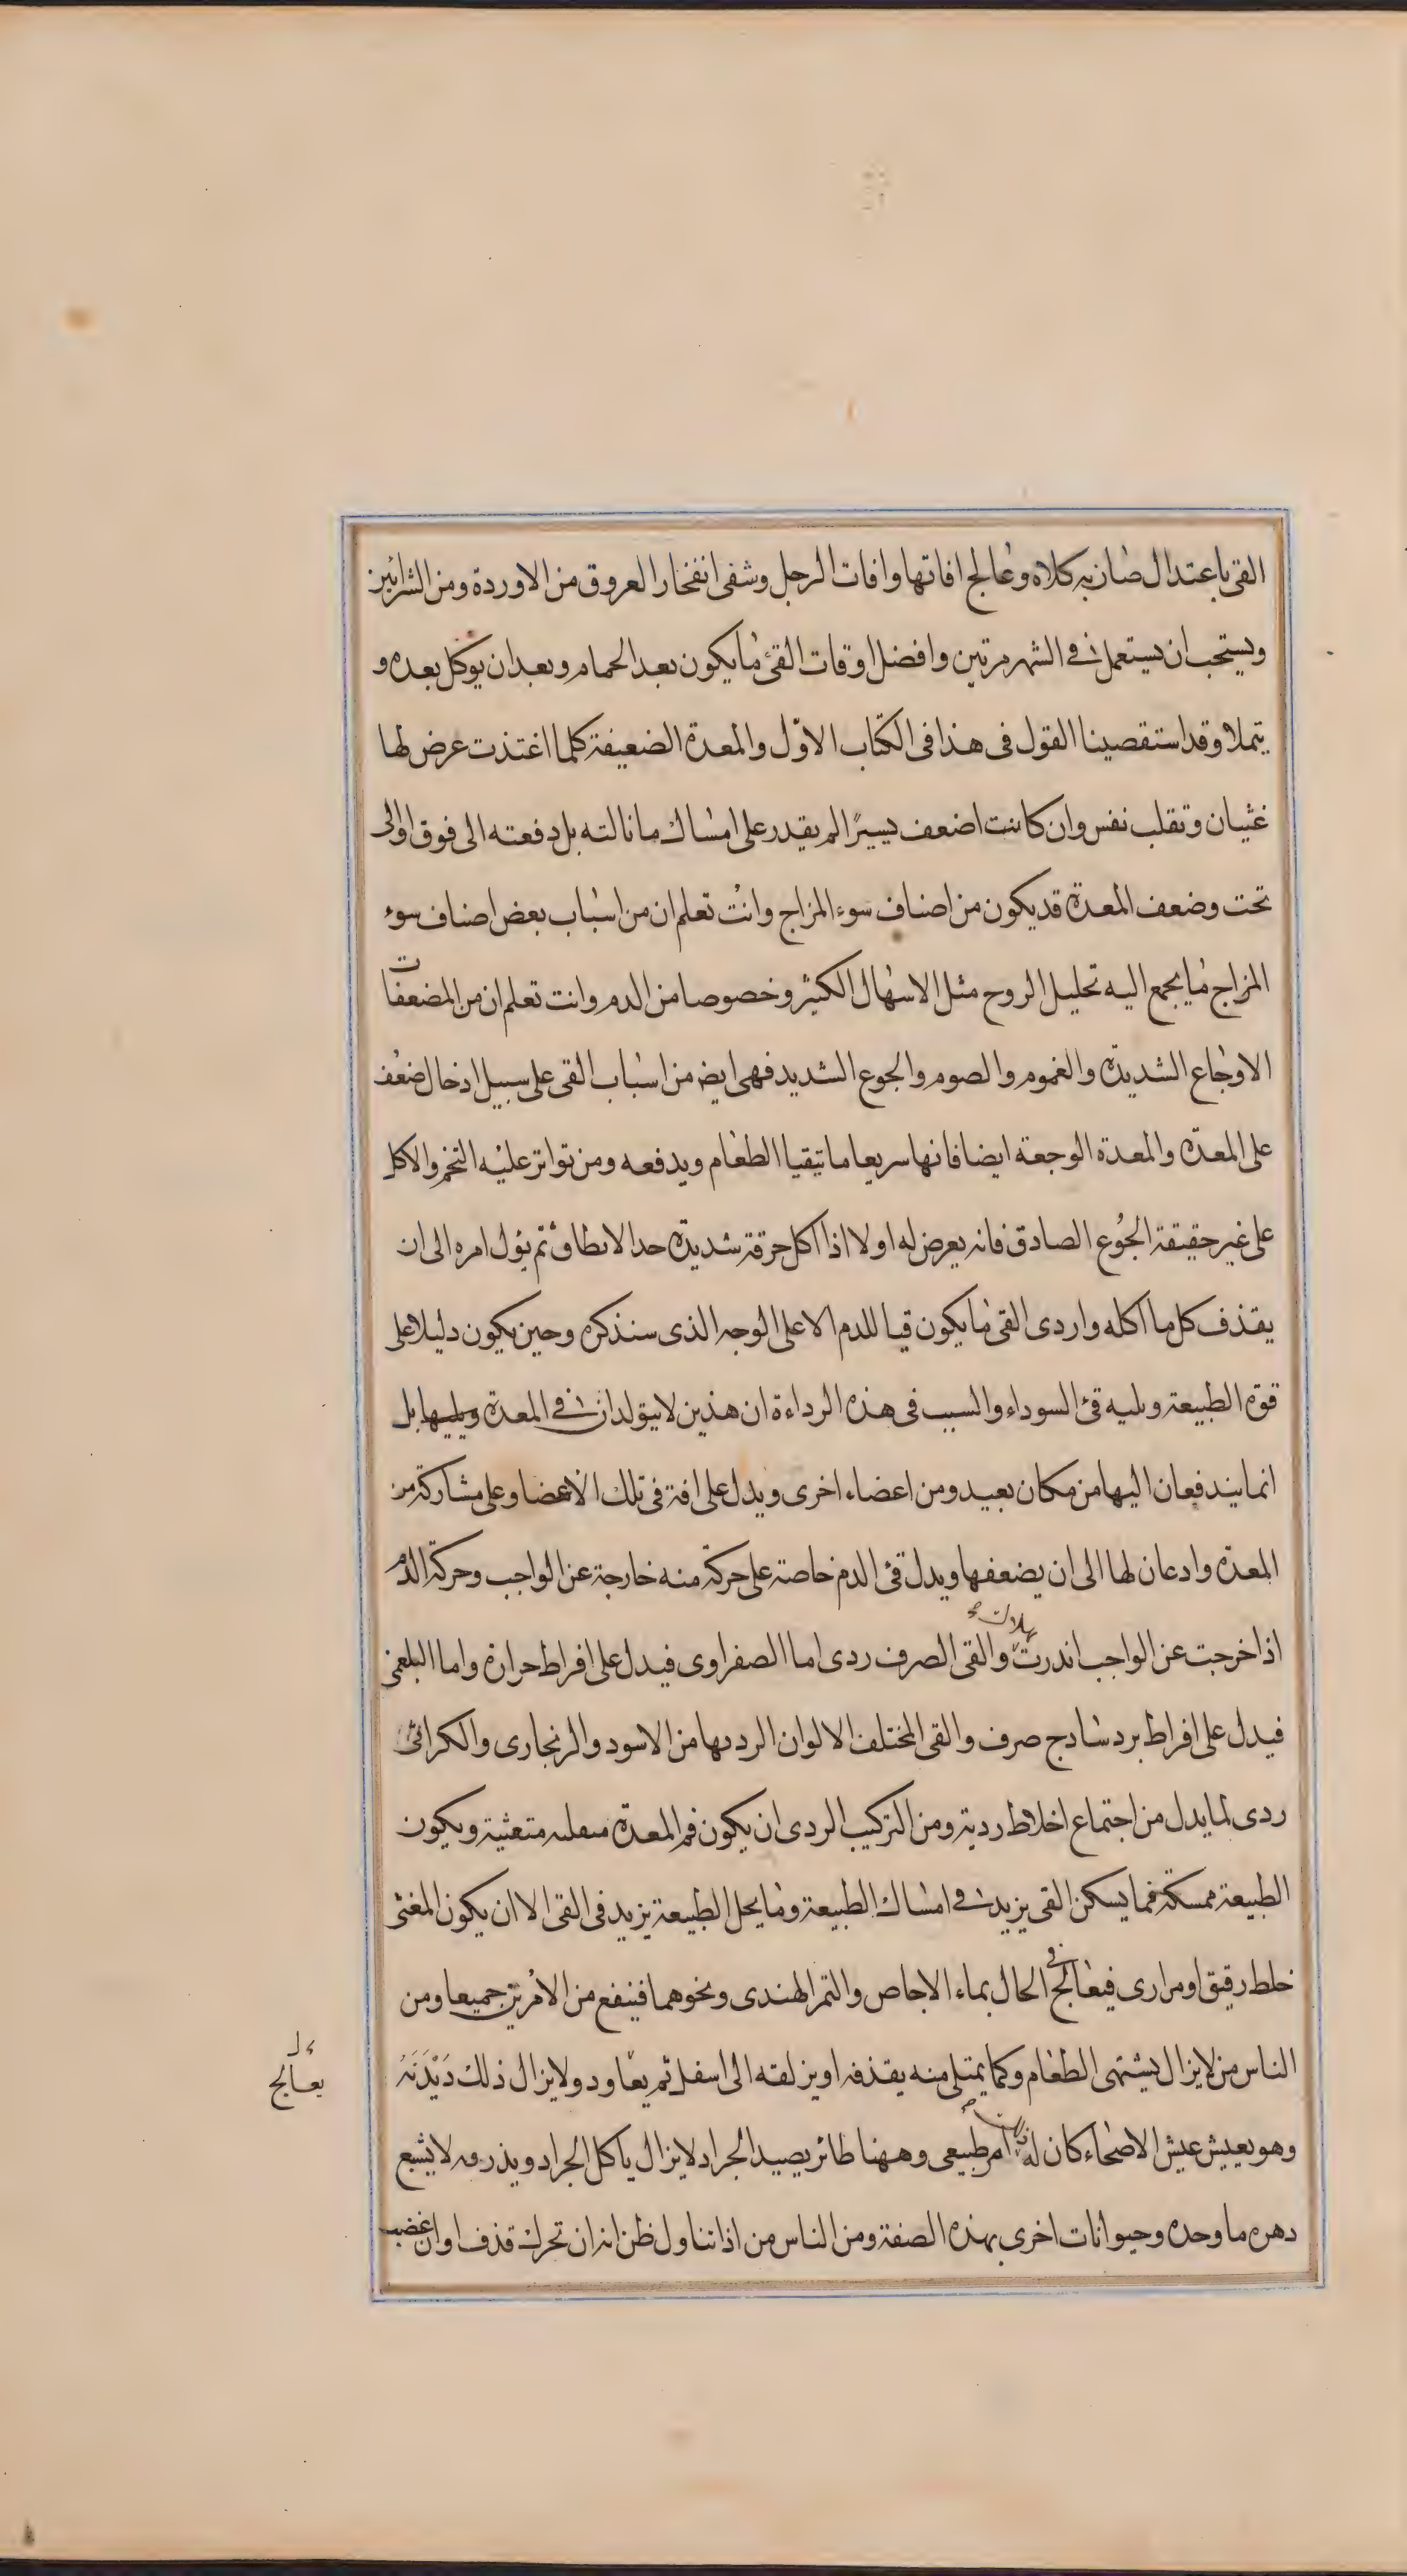 القى باعتدال صان به كلاه وعالج افاتها وافات الرجل وشفى انفخار العروق من الاوردة ومن الشرائين
ويستحب ان يستعمل في الشهر مرتين وافضل اوقات القئ ما يكون بعد الحمام وبعد ان يوكل بعده و
يتملا وقد استقصينا القول فى هذا فى الكتاب الاوّل والمعدة الضعيفة كلما اغتذت عرض لها
غثيان وتقلب نفس وان كانت اضعف يسيرًا لم يقدر على امساك ما نالته بل دفعته الى فوق او الى
تحت وضعف المعدة قد يكون من اصناف سوء المزاج وانت تعلم ان من اسباب بعض اصناف سوء
المزاج ما يجمع اليه تحليل الروح مثل الاسهال الكثير وخصوصا من الدم وانت تعلم ان من المضعفات
الاوجاع الشديدة والغموم والصوم والجوع الشديد فهى ايضا من اسباب القى على سبيل ادخال ضعف
على المعدة والمعدة الوجعة ايضا فانها سريعا ما تتقيا الطعام ويدفعه ومن تواتر عليه التخم والاكل
على غير حقيقة الجُوع الصادق فانه يعرض له اولا اذا اكل حرقة شديدة حدا لايطاق ثم يؤل امره الى ان
يقذف كل ما اكله واردى القى ما يكون قيا للدم الا على الوجه الذى سنذكره وحين يكون دليلا على
قوة الطبيعة ويليه قئ السوداء والسبب فى هذه الرداءة ان هذين لا يتولدان في المعدة ويليها بل
انما يندفعان اليها من مكان بعيد ومن اعضاء اخرى ويدل على افة فى تلك الاعضا وعلى مشاركة من
المعدة وادعان لها الى ان يضعفها ويدل قئ الدم خاصة على حركة منه خارجة عن الواجب وحركة الدم
اذا خرجت عن الواجب انذرت بهلاك والقى الصرف ردى اما الصفراوى فيدل على افراط حرارة واما البلغمى
فيدل على افراط برد ساذج صرف والقى المختلف الالوان الرديها من الاسود والزنجارى والكراثى
ردى لما يدل من اجتماع اخلاط ردية ومن التركيب الردى ان يكون فم المعدة متغثية ويكون
الطبيعة ممسكة فما يسكن القى يزيد في امساك الطبيعة وما يحل الطبيعة يزيد فى القى الا ان يكون المغثى
خلط رقيق او مرارى فيعالج فى الحال بماء الاجاص والتمر الهندى ونحوهما فينفع من الامرين جميعا ومن
الناس من لا يزال يشتهى الطعام وكما يمتلى منه يقذفه او يزلقه الى اسفل ثم يعاود ولا يزال ذلك دَيْدَنَهُ
وهو يعيش عيش الاصحاء كان له امر طبيعى وههنا طائر يصيد الجراد لا يزال ياكل الجراد ويذرقه لا يشبع
دهره ما وحده وحيوانات اخرى بهذه الصفة ومن الناس من اذا تناول ظن انه ان تحرك قذف او ان غضب
يعالج